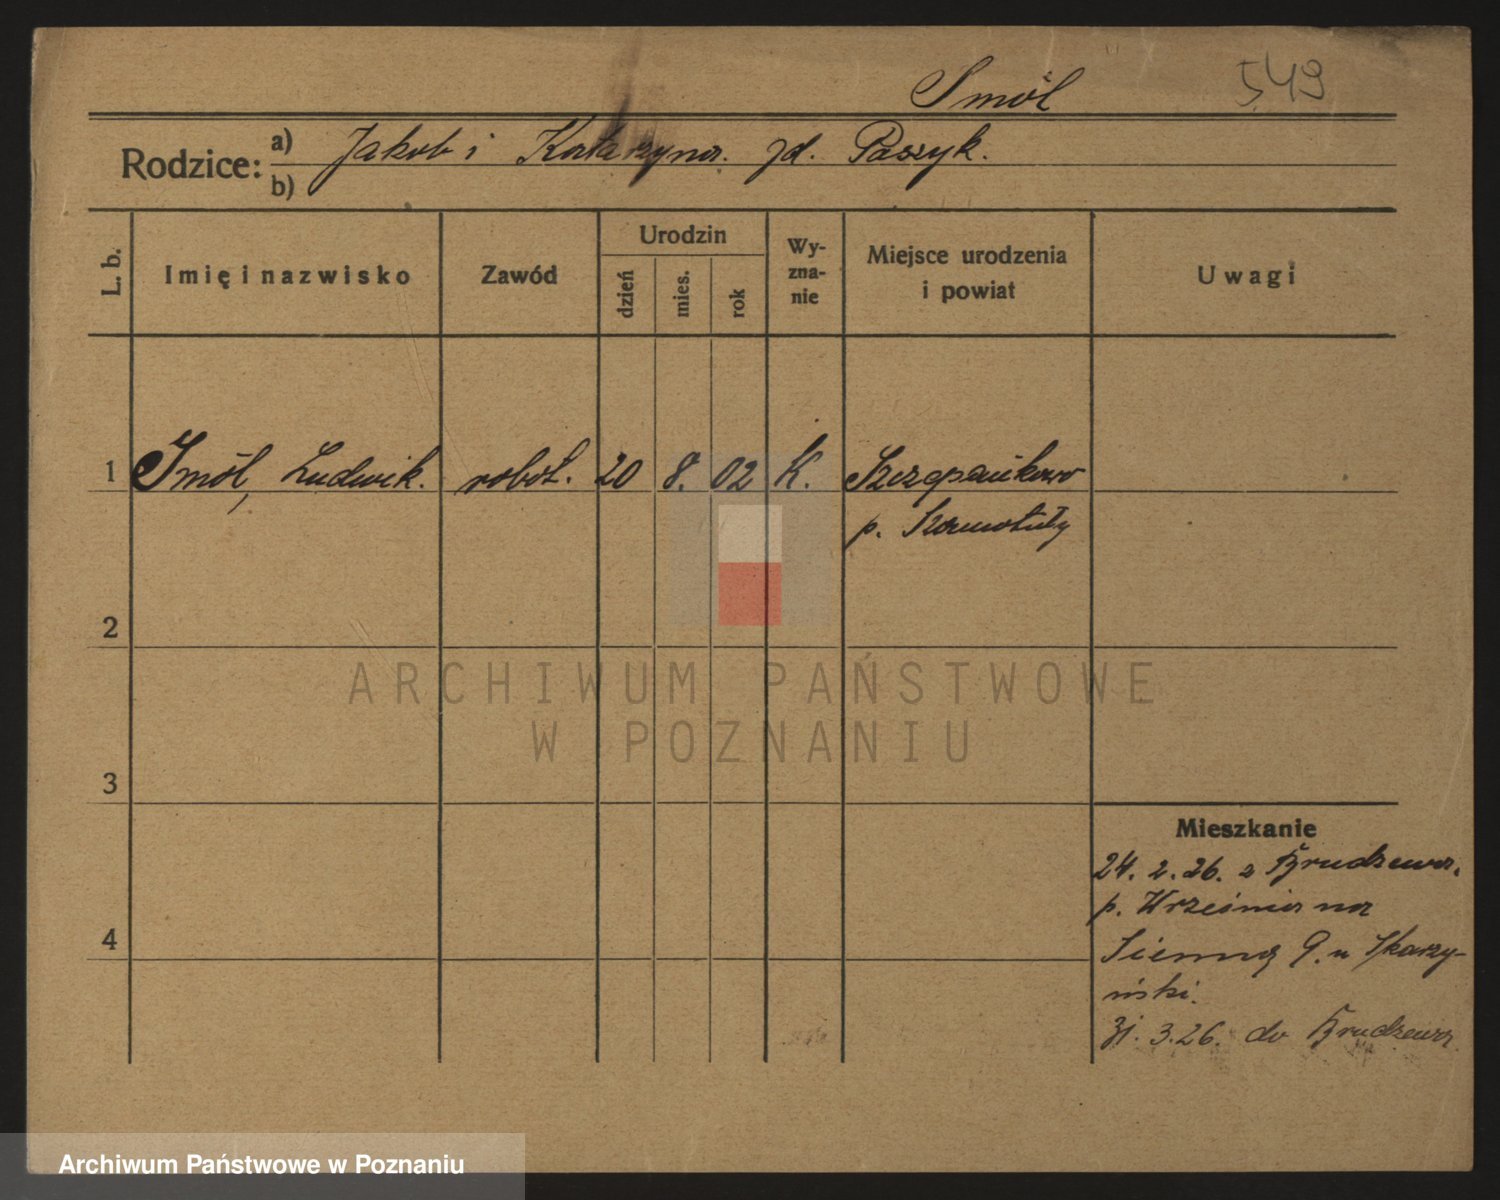 Smól 549
Rodzice: a) Jakob i Katarzyna zd. Paszyk.
b)
L. b. Imię i nazwisko Zawód Urodzin dzień mies. rok Wy-zna-nie Miejsce urodzenia i powiat Uwagi
1 Smól, Ludwik. robot. 20 8. 02 K. Szczepankowo
p. Szamotuły
2
ARCHIWUM PAŃSTWOWE
W POZNANIU
3
Mieszkanie
24. 2. 26. z Brudzewa.
p. Września na
4
Sienna 9. u Skarzy-
ński.
31. 3.26. do Brudzewa
Archiwum Państwowe w Poznaniu